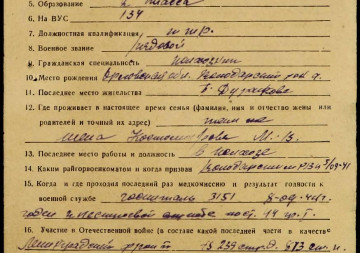 5. Образование 2 класса
6. На ВУС 134
7. Должностная квалификация
8. Военное звание рядовой
9. Гражданская специальность колхозник
10. Место рождения Орловская обл. р-он д.
11. Последнее место жительства
12. Где проживает в настоящее время семья (фамилия, имя и отчество жены или
родителей и точный их адрес) там же
жена М. В.
13. Последнее место работы и должность в колхозе
14. Каким райгорвоенкоматом и когда призван РВК 3/09-41
15. Когда и где проходил последний раз медкомиссию и результат годности к
военной службе госпиталь 3151 8-09-42г
годен к службе ст. г.
16. Участие в Отечественной войне (в составе какой последней части и в качестве
Ленинградский фронт 239 стр. д. 813 сп.